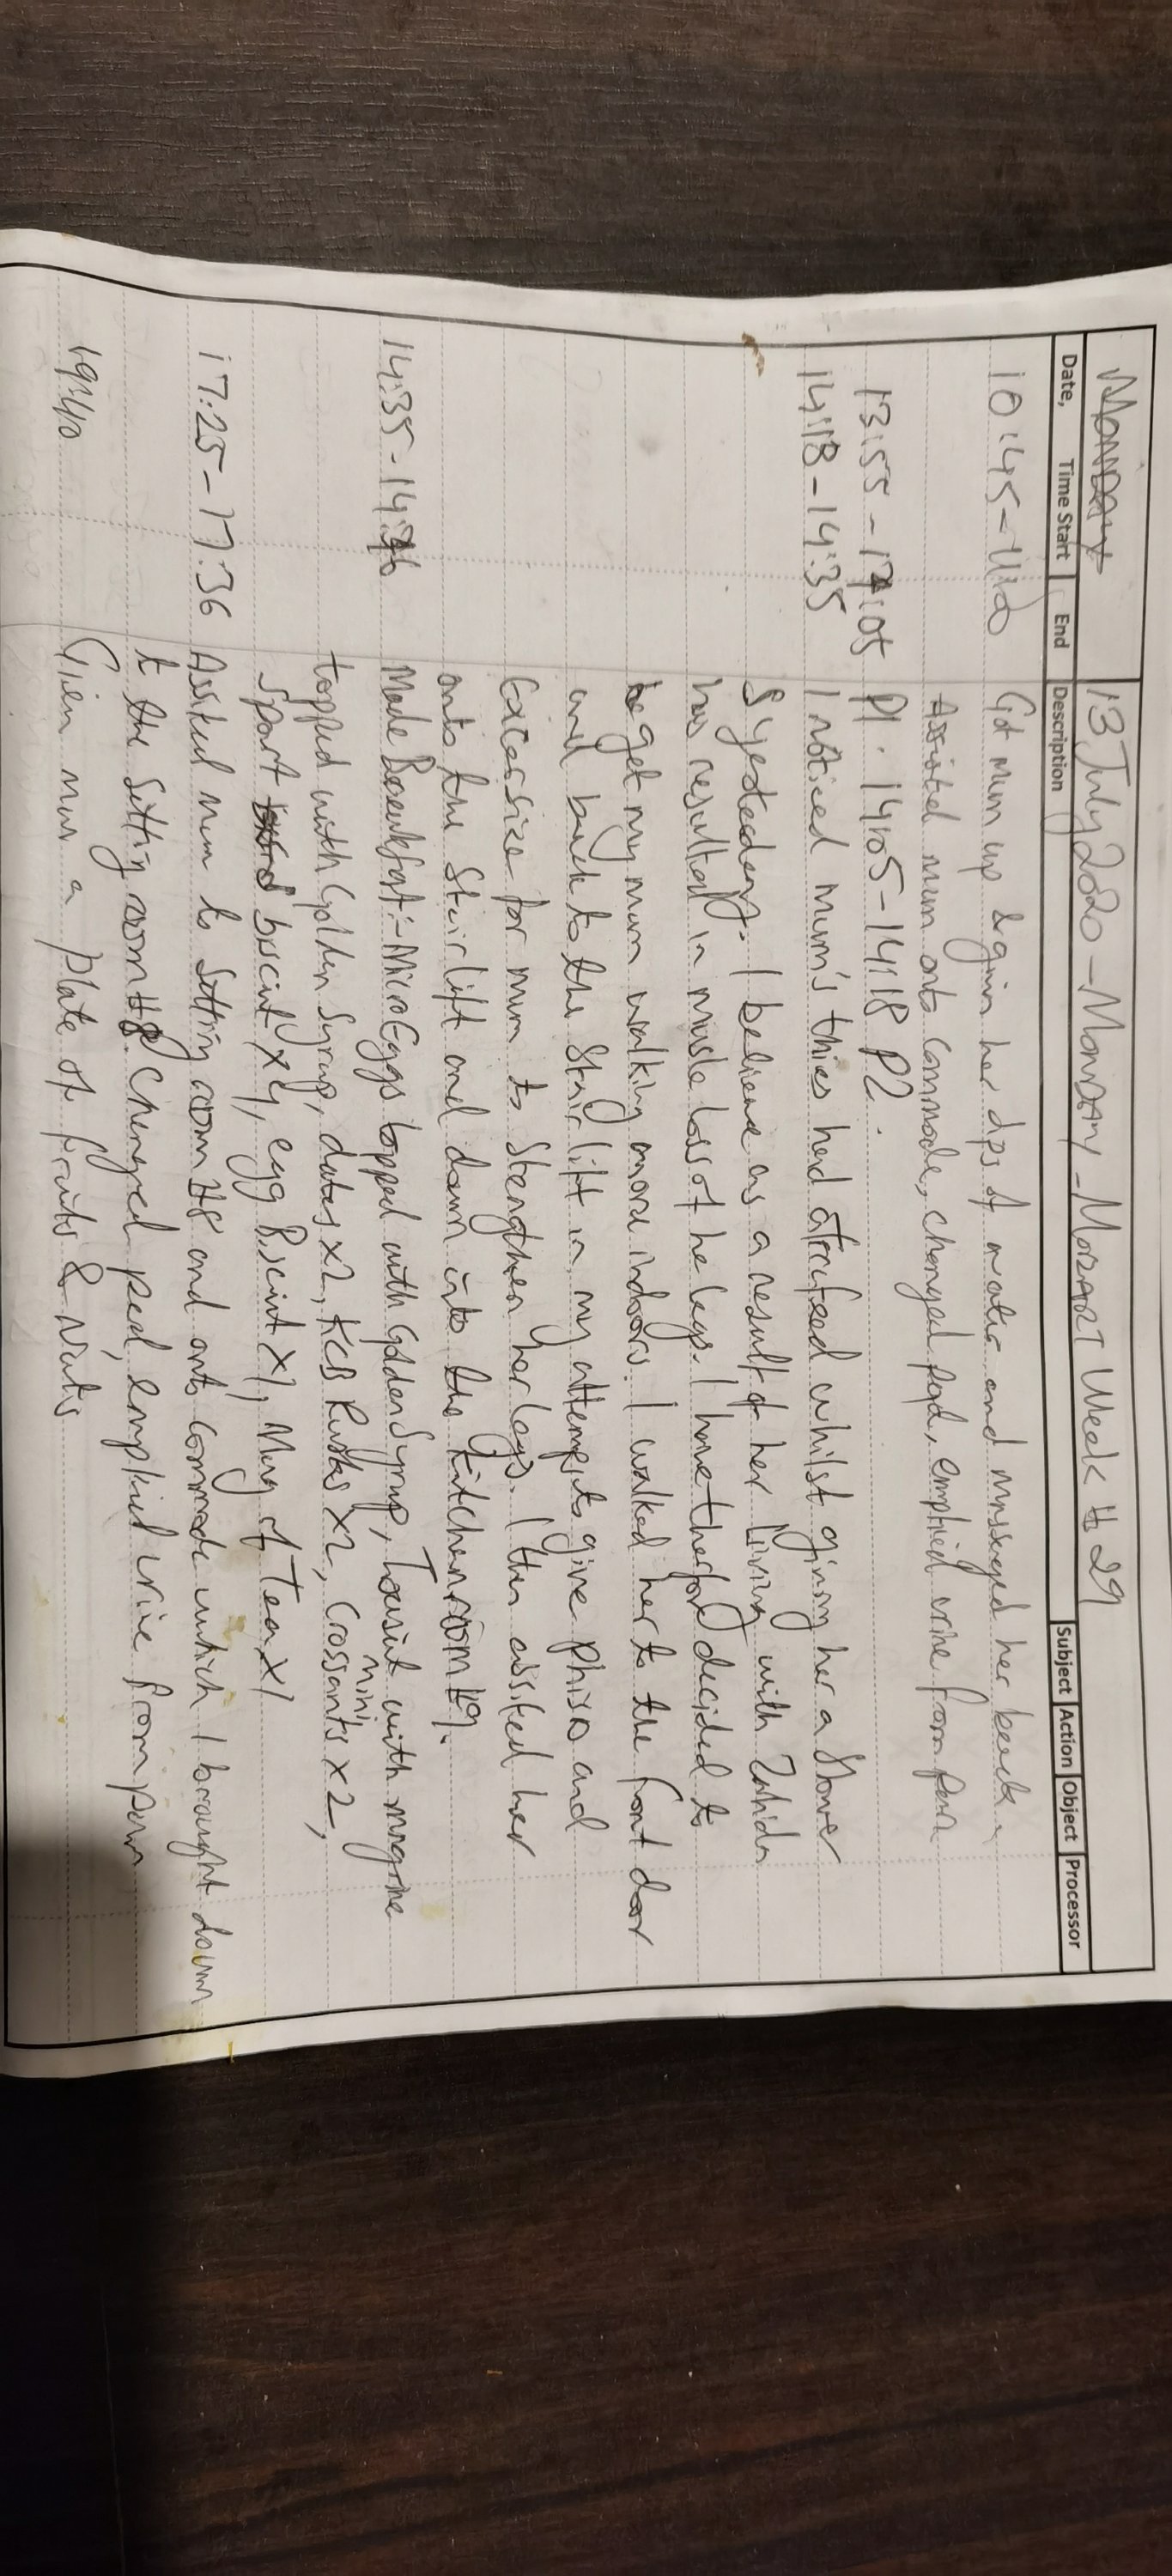 MONDAY 13 July 2020 - MONDAY - MOZART Week # 29
Date, Time Start End Description Subject Action Object Processor
10:45 - Got mum up & givin her dps of water and massaged her back
Assisted mum onto commode, changed pad, emptied urine from pan
13:55 - 14:05 P1. 14:05-14:18 P2.
14:18-14:35 I noticed mum's thies had atrofeed whilst giving her a shower
yesteday. I believe as a result of her living with Zahida
has resulted in musle loss of he legs. I have therfore decided to
get my mum walking more indoors. I walked her to the front door
and back to the stair lift in my attempts give phiso and
Excersize for mum to Stengthen her legs. I then assited her
onto the stairlift and down into the kitchen room #9.
14:35-14:46 Made Breekfast:- Micro Eggs topped with Golden Syrup, Toasit with magrine
topped with Golden Syrup, dates x2, KCB Rusks x2, mini Crossants x2,
Spart biscint x4, egg Biscint x1, Mug of Tea x1
17:25-17:36 Assited mum to Sitting room #8 and onto commode which I brought down
t the sitting room #8. Chenged pad, emptied urine from pan
19:40 Gien mum a plate of fruits & Nuts